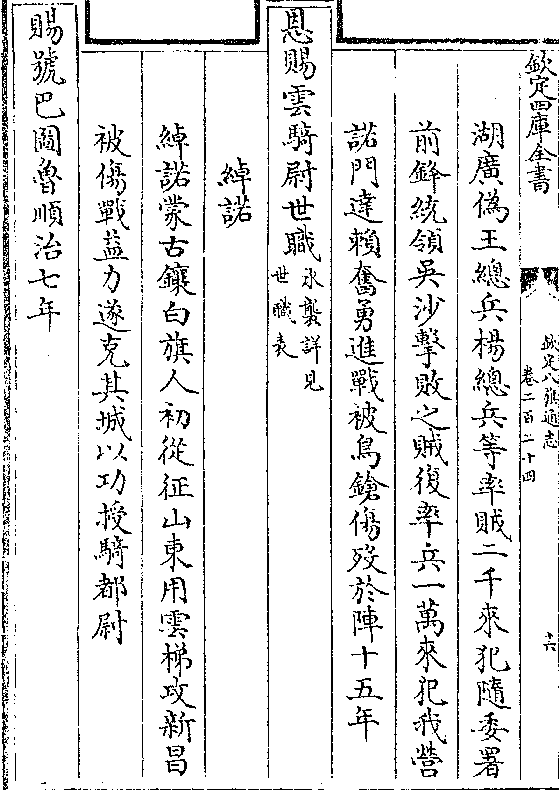 欽定四庫全書
欽定八旗通志
卷二百二十四
十六
湖廣偽王總兵楊總兵等率賊二千來犯隨委署
前鋒統領吳沙擊敗之賊復率兵一萬來犯我營
諾門達賴奮勇進戰被鳥鎗傷歿於陣十五年
恩賜雲騎尉世職
承襲詳見
世職表
綽諾
綽諾蒙古鑲白旗人初從征山東用雲梯攻新昌
被傷戰益力遂克其城以功授騎都尉
賜號巴圖魯順治七年